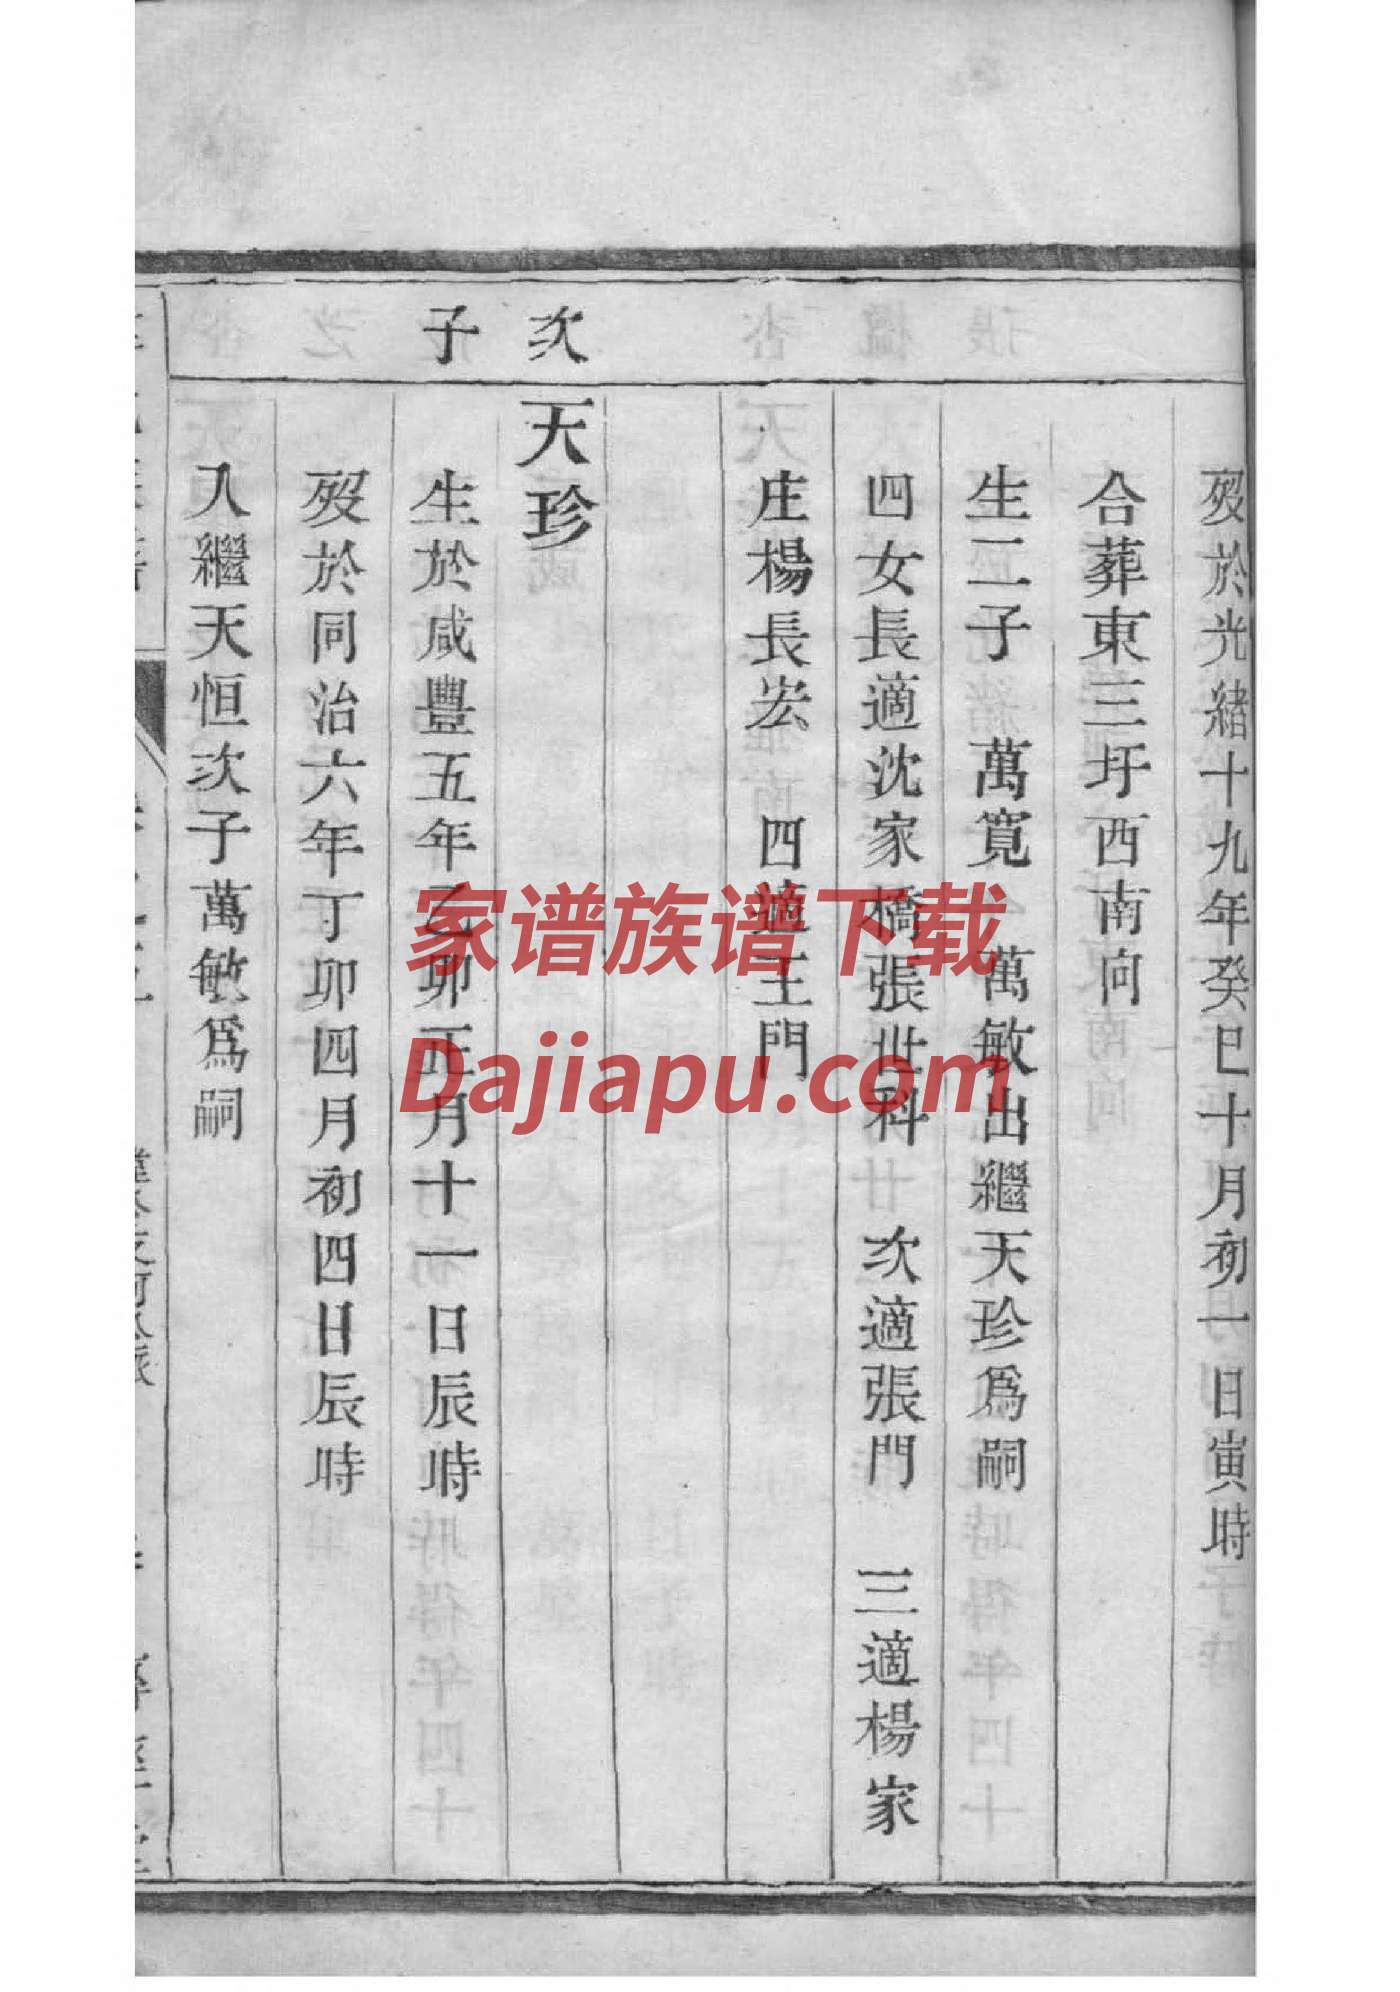 歿於光緒十九年癸巳十月初一日寅時
合葬東三圩西南向
生二子 萬寬 萬敏出繼天珍爲嗣
四女長適沈家橋張世科 次適張門 三適楊家
庄楊長宏 四適王門
次子
天珍
生於咸豐五年乙卯正月十一日辰時
歿於同治六年丁卯四月初四日辰時
入繼天恒次子萬敏爲嗣
家谱族谱下载
Dajiapu.com